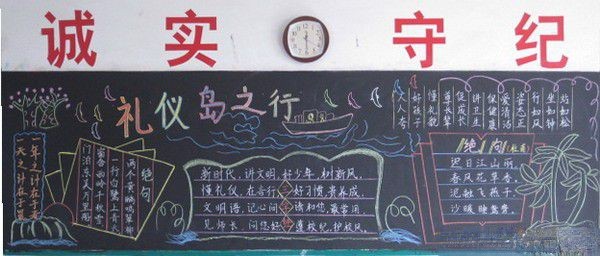 诚 实 守 纪
礼仪岛之行
一年之计在于春
一天之计在于晨
绝句
两个黄鹂鸣翠柳
一行白鹭上青天
窗含西岭千秋雪
门泊东吴万里船
新时代，讲文明，好少年，树新风。
懂礼仪，在言行，好习惯，贵养成，
文明语，记心间，请和您，最常用，
见师长，问您好，遵校纪，护校风，
站如松
坐如钟
行如风
姿态正
爱清洁
保健康
讲卫生
尊长辈
懂礼貌
好孩子
人人夸
绝句
迟日江山丽，
春风花草香。
泥融飞燕子，
沙暖睡鸳鸯。